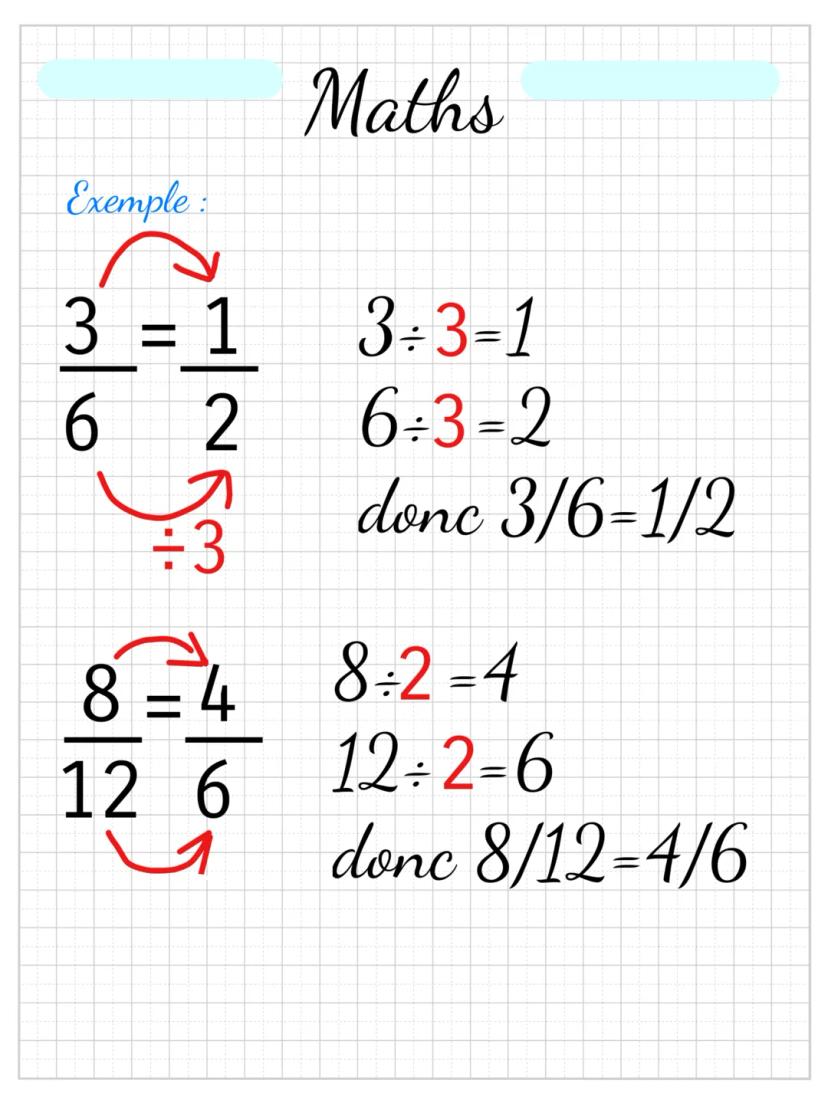 Maths
Exemple :
3/6 = 1/2
÷3
3÷3=1
6÷3=2
donc 3/6=1/2
8/12 = 4/6
8÷2=4
12÷2=6
donc 8/12=4/6